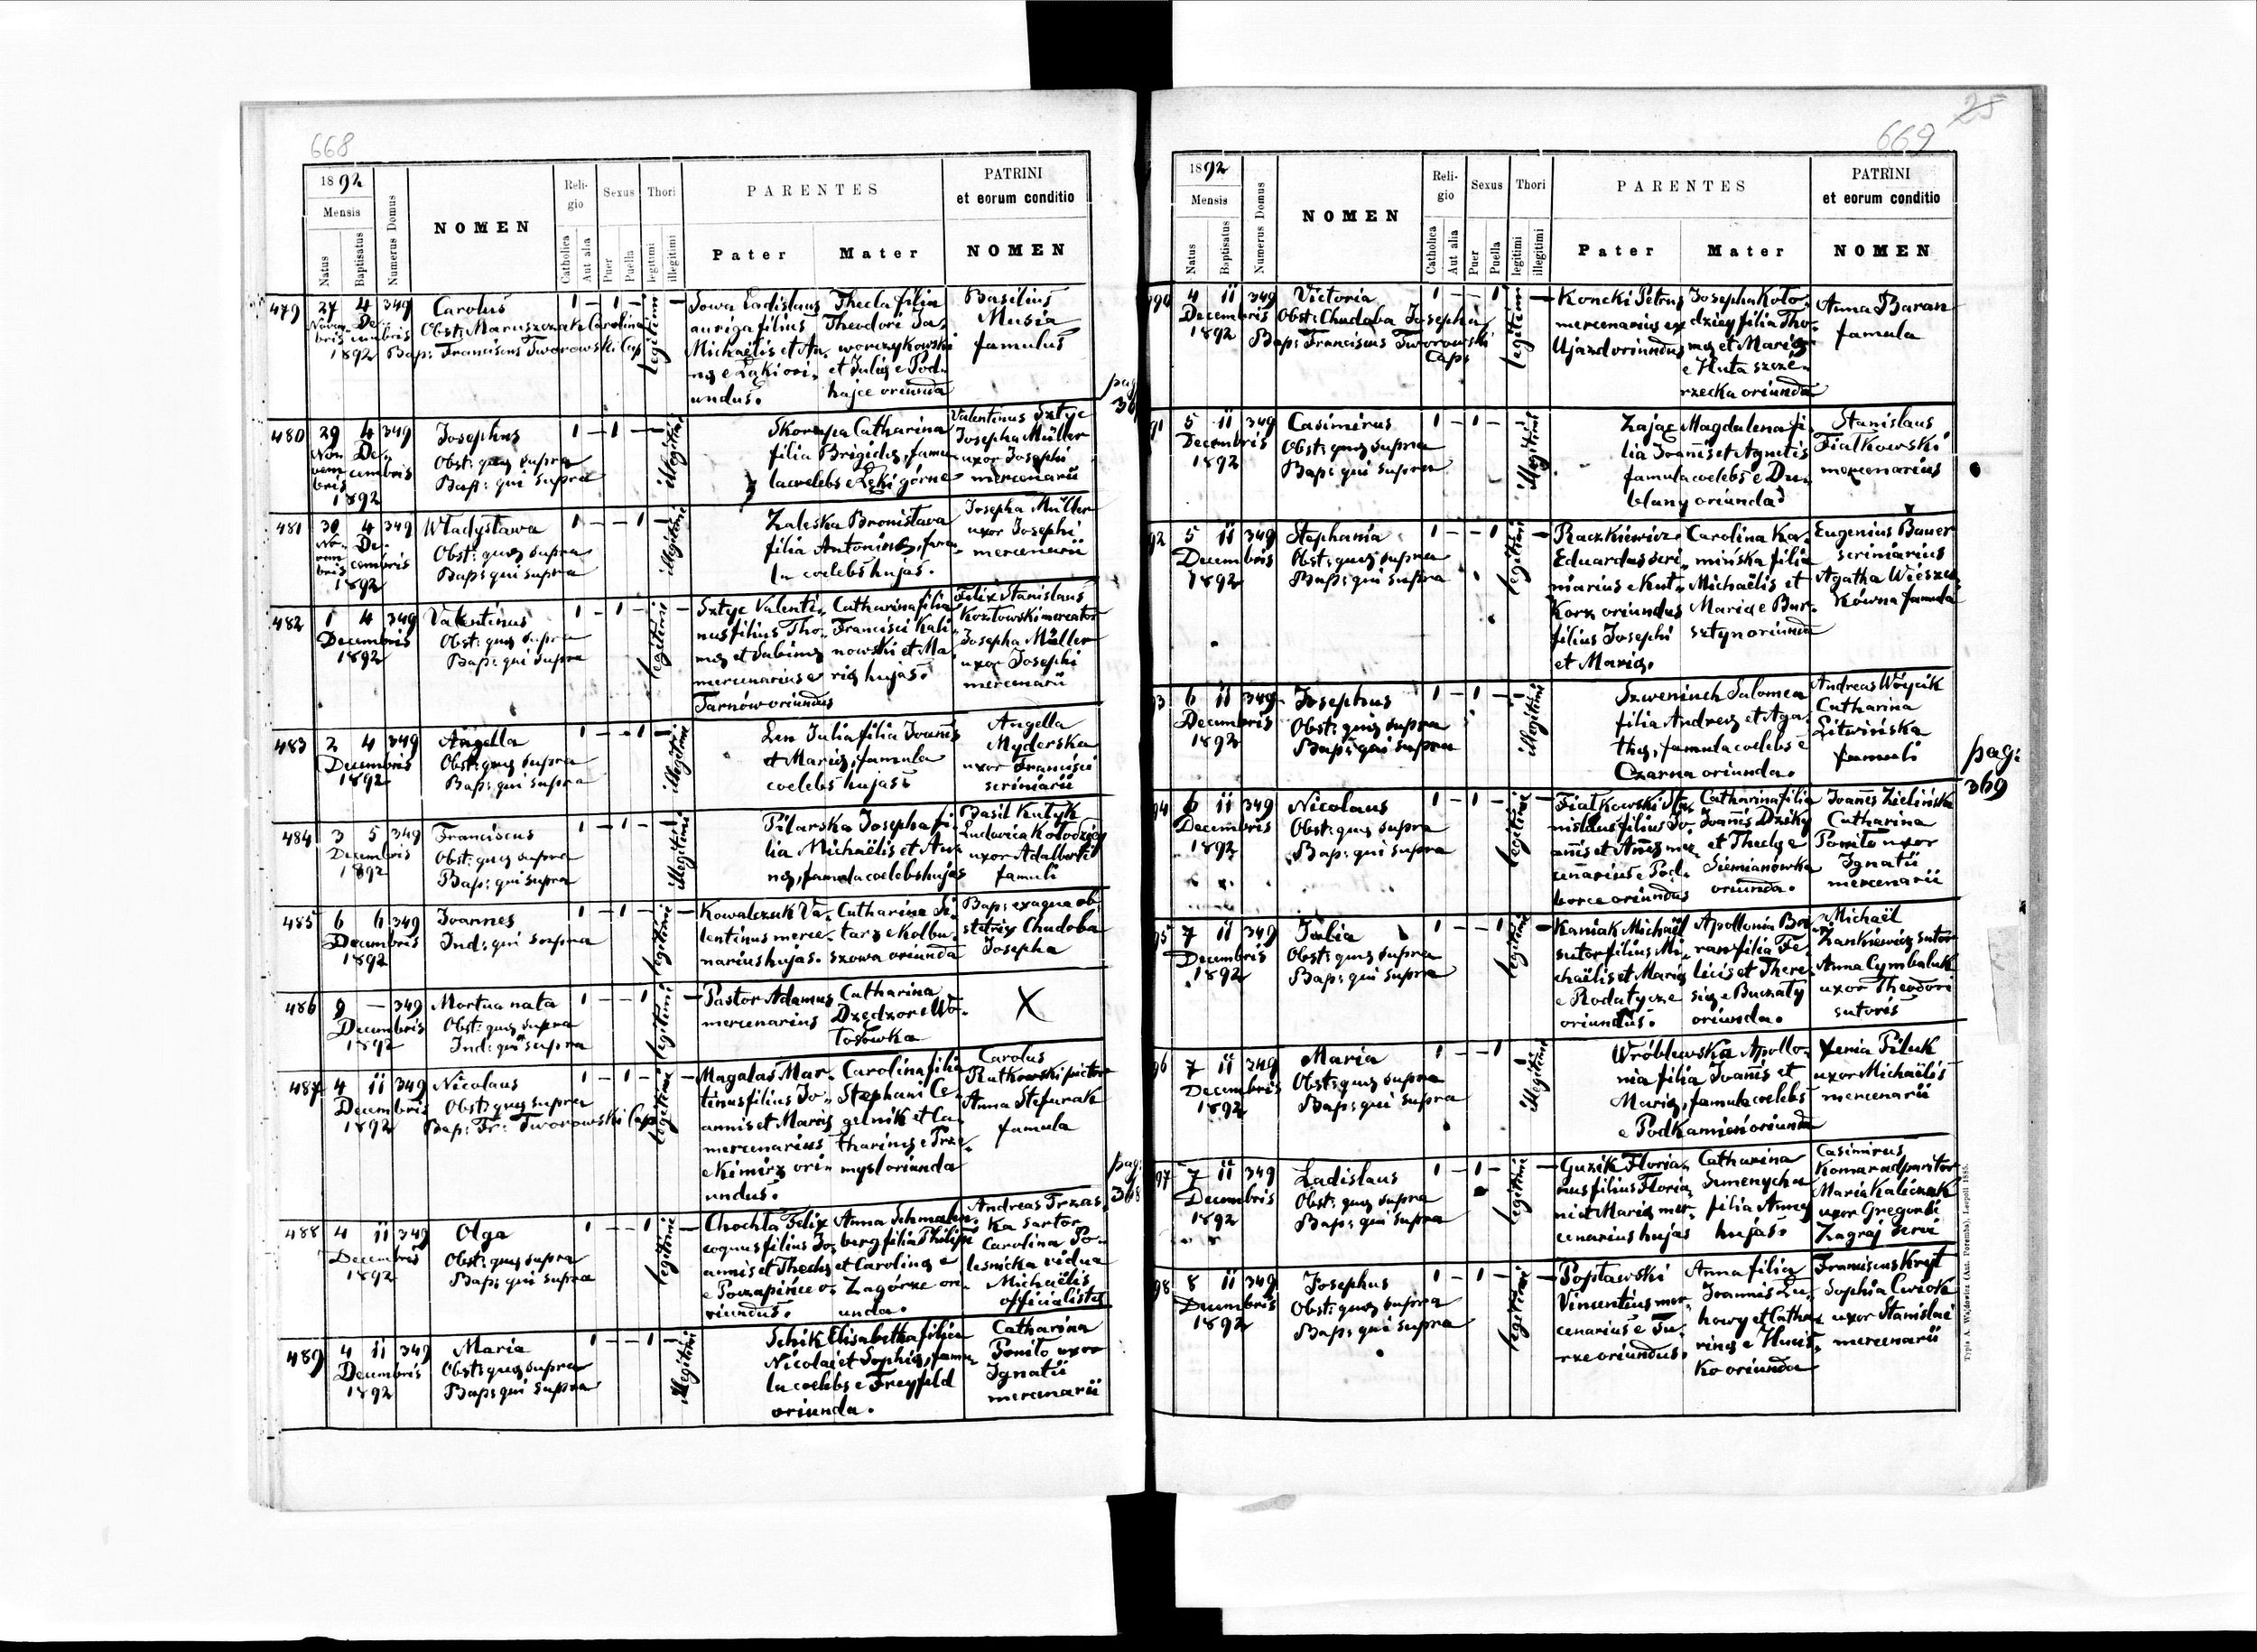 668
1892
Mensis
Natus
Baptisatus
Numerus Domus
NOMEN
Reli-
gio
Catholica
Aut alia
Sexus
Puer
Puella
Thori
legitimi
illegitimi
PARENTES
Pater
Mater
PATRINI
et eorum conditio
NOMEN
479
27 4 349
Novem- De-
bris cembris
1892
Carolus
Obst: Maruszczak Carolina
Bap: Franciscus Tworowski Cap
1 – 1 –
legitimi
Sowa Ladislaus
auriga filius
Michaëlis et An-
næ e Łąki ori-
undus.
Thecla filia
Theodori Ja-
worczykowski
et Juliæ e Pod-
hajce oriunda
Basilius
Musia
famulus
480
29 4 349
Novem- De-
bris cembris
1892
Josephus
Obst: quæ supra
Bap: qui supra
1 – 1 –
illegitimi
Skorupa Catharina
filia Brigidæ, famu-
la coelebs e Łąki górne
Valentinus Sztyc
Josepha Müller
uxor Josephi
mercenarii
481
30 4 349
No- De-
vem- cembris
bris
1892
Władysława
Obst: quæ supra
Bap: qui supra
1 – – 1
illegitimi
Zaleska Bronisława
filia Antoninæ, famu-
la coelebs hujas.
Josepha Müller
uxor Josephi
mercenarii
482
1 4 349
Decembris
1892
Valentinus
Obst: quæ supra
Bap: qui supra
1 – 1 –
legitimi
Sztyc Valenti-
nus filius Tho-
mæ et Sabinæ
mercenarius e
Tarnów oriundus
Catharina filia
Francisci Kali-
nowski et Ma-
riæ hujas.
Felix Stanislaus
Kozłowski mercator
Josepha Müller
uxor Josephi
mercenarii
483
2 4 349
Decembris
1892
Angella
Obst: quæ supra
Bap: qui supra
1 – – 1
illegitimi
Len Julia filia Joannis
et Mariæ, famula
coelebs hujas
Angella
Myderska
uxor Francisci
scriniarii
484
3 5 349
Decembris
1892
Franciscus
Obst: quæ supra
Bap: qui supra
1 – 1 –
illegitimi
Pilarska Josepha fi-
lia Michaëlis et An-
næ, famula coelebs hujas
Basil Kutyk
Ludovica Kołodziej
uxor Adalberti
famuli
485
6 6 349
Decembris
1892
Joannes
Ind: qui supra
1 – 1 –
legitimi
Kowalczuk Va-
lentinus merce-
narius hujas.
Catharina Si-
tarz e Kolbu-
szowa oriunda
Bap: ex aqua ob-
stetrix Chudoba
Josepha
486
9 – 349
Decembris
1892
Mortua nata
Obst: quæ supra
Ind: qui supra
1 – – 1
legitimi
Pastor Adamus
mercenarius
Catharina
Dzedzor e Wo-
łosowka
X
487
4 11 349
Decembris
1892
Nicolaus
Obst: quæ supra
Bap: Fr: Tworowski Cap
1 – 1 –
legitimi
Magalas Mar-
tinus filius Jo-
annis et Mariæ
mercenarius
e Kimirz ori-
undus.
Carolina filia
Stephani Ce-
gelnik et Ca-
tharinæ e Prze-
mysl oriunda
Carolus
Rutkowski pictor
Anna Stefurak
famula
488
4 11 349
Decembris
1892
Olga
Obst: quæ supra
Bap: qui supra
1 – – 1
legitimi
Chochla Felix
coquus filius Jo-
annis et Theclæ
e Poczapińce o-
riundus.
Anna Schmalen-
berg filia Philippi
et Carolinæ e
Zagórze ori-
unda.
Andreas Trzas-
ka sartor
Carolina Po-
lesnicka vidua
Michaëlis
officialistæ
489
4 11 349
Decembris
1892
Maria
Obst: quæ supra
Bap: qui supra
1 – – 1
illegitimi
Schik Elisabetha filia
Nicolai et Sophiæ, famu-
la coelebs e Freyfeld
oriunda.
Catharina
Pomito uxor
Ignatii
mercenarii
pag:
368
25
669
1892
Mensis
Natus
Baptisatus
Numerus Domus
NOMEN
Reli-
gio
Catholica
Aut alia
Sexus
Puer
Puella
Thori
legitimi
illegitimi
PARENTES
Pater
Mater
PATRINI
et eorum conditio
NOMEN
4 11 349
Decembris
1892
Victoria
Obst: Chudoba Josepha
Bap: Franciscus Tworowski
Cap:
1 – – 1
legitimi
Koncki Petrus
mercenarius ex
Ujazd oriundus
Josepha Koło-
dziey filia Tho-
mæ et Mariæ
e Huta szcze-
rzecka oriunda
Anna Baran
famula
91
5 11 349
Decembris
1892
Casimirus
Obst: quæ supra
Bap: qui supra
1 – 1 –
illegitimi
Zając Magdalena fi-
lia Joannis et Agnetis
famula coelebs e Du-
blany oriunda
Stanislaus
Fiałkowski
mercenarius
92
5 11 349
Decembris
1892
Stephania
Obst: quæ supra
Bap: qui supra
1 – – 1
legitimi
Raczkiewicz
Eduardus scri-
niarius e Kut-
korz oriundus
filius Josephi
et Mariæ.
Carolina Ka-
mińska filia
Michaëlis et
Mariæ e Bur-
sztyn oriunda
Eugenius Bauer
scriniarius
Agatha Wieszcz-
kówna famula
93
6 11 349
Decembris
1892
Josephus
Obst: quæ supra
Bap: qui supra
1 – 1 –
illegitimi
Szweninch Salomea
filia Andreæ et Aga-
thæ, famula coelebs e
Czarna oriunda.
Andreas Wóycik
Catharina
Litwińska
famuli
94
6 11 349
Decembris
1892
Nicolaus
Obst: quæ supra
Bap: qui supra
1 – 1 –
legitimi
Fiałkowski Sta-
nislaus filius Jo-
annis et Annæ mer-
cenarius e Pod-
borce oriundus
Catharina filia
Joannis Dziky
et Theclæ e
Siemianówka
oriunda.
Joannes Zielińska
Catharina
Pomito uxor
Ignatii
mercenarii
95
7 11 349
Decembris
1892
Julia
Obst: quæ supra
Bap: qui supra
1 – – 1
legitimi
Kaniak Michaël
sutor filius Mi-
chaëlis et Mariæ
e Rodatycze
oriundus.
Apollonia Ba-
ran filia Fe-
licis et There-
siæ e Buczaty
oriunda.
Michaël
Zankiewicz sutor
Anna Cymbaluk
uxor Theodori
sutoris
96
7 11 349
Decembris
1892
Maria
Obst: quæ supra
Bap: qui supra
1 – – 1
illegitimi
Wróblewska Apollo-
nia filia Joannis et
Mariæ, famula coelebs
e Podkamień oriunda
Xenia Filuk
uxor Michaëlis
mercenarii
97
7 11 349
Decembris
1892
Ladislaus
Obst: quæ supra
Bap: qui supra
1 – 1 –
legitimi
Guzik Floria-
nus filius Floria-
ni et Mariæ mer-
cenarius hujas
Catharina
Semenycha
filia Annæ
hujas.
Casimirus
Komarad portor
Maria Kaliczak
uxor Gregorii
Zagraj servi
98
8 11 349
Decembris
1892
Josephus
Obst: quæ supra
Bap: qui supra
1 – 1 –
legitimi
Popławski
Vincentius mer-
cenarius e Tu-
rze oriundus.
Anna filia
Joannis Lu-
howy et Catha-
rinæ e Hucis-
ko oriunda
Franciscus Kryt
Sophia Cwiok
uxor Stanislai
mercenarii
pag:
369
Typis A. Wajdowicz (Ant. Poremba). Leopoli 1885.